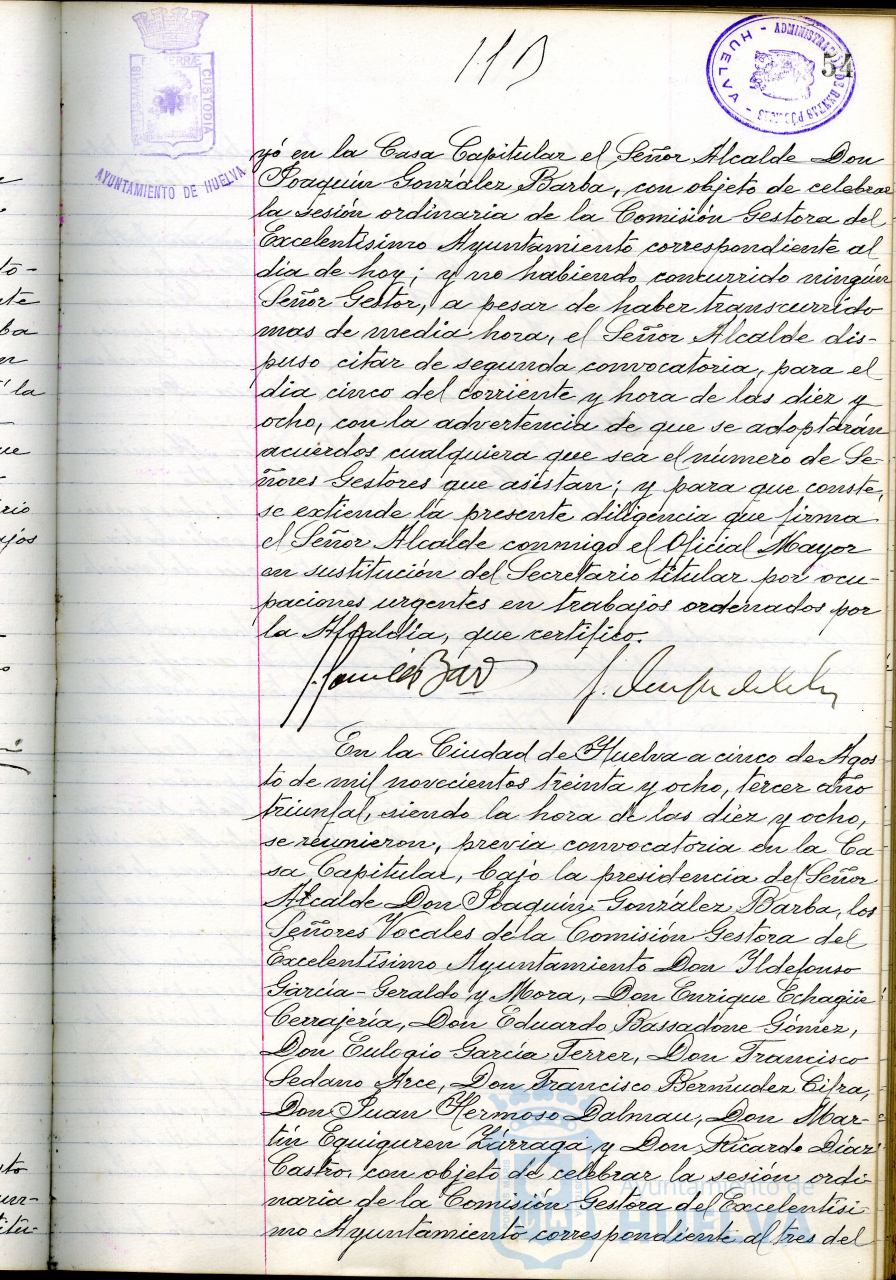 113
54
PORTUS MARIS
ET TERRÆ
CUSTODIA
AYUNTAMIENTO DE HUELVA
ADMINISTRACION DE RENTAS PÚBLICAS - HUELVA -
yó en la Casa Capitular el Señor Alcalde Don
Joaquín González Barba, con objeto de celebrar
la sesión ordinaria de la Comisión Gestora del
Excelentísimo Ayuntamiento correspondiente al
día de hoy; y no habiendo concurrido ningún
Señor Gestor, a pesar de haber transcurrido
mas de media hora, el Señor Alcalde dis-
puso citar de segunda convocatoria, para el
día cinco del corriente y hora de las diez y
ocho, con la advertencia de que se adoptarán
acuerdos cualquiera que sea el número de Se-
ñores Gestores que asistan; y para que conste,
se extiende la presente diligencia que firma
el Señor Alcalde conmigo el Oficial Mayor
en sustitución del Secretario titular por ocu-
paciones urgentes en trabajos ordenados por
la Alcaldía, que certifico.
En la Ciudad de Huelva a cinco de Agos
to de mil novecientos treinta y ocho, tercer año
triunfal, siendo la hora de las diez y ocho,
se reunieron, previa convocatoria en la Ca
sa Capitular, bajo la presidencia del Señor
Alcalde Don Joaquín González Barba, los
Señores Vocales de la Comisión Gestora del
Excelentísimo Ayuntamiento Don Ildefonso
García-Geraldo y Mora, Don Enrique Echagüe
Cerrajería, Don Eduardo Bassadone Gómez,
Don Eulogio García Ferrer, Don Francisco
Sedano Arce, Don Francisco Bermudez Cifra,
Don Juan Hermoso Dalmau, Don Mar-
tín Eguiguren Zárraga y Don Ricardo Díaz
Castro, con objeto de celebrar la sesión ordi-
naria de la Comisión Gestora del Excelentísi
mo Ayuntamiento correspondiente al tres del
Ayuntamiento de
HUELVA